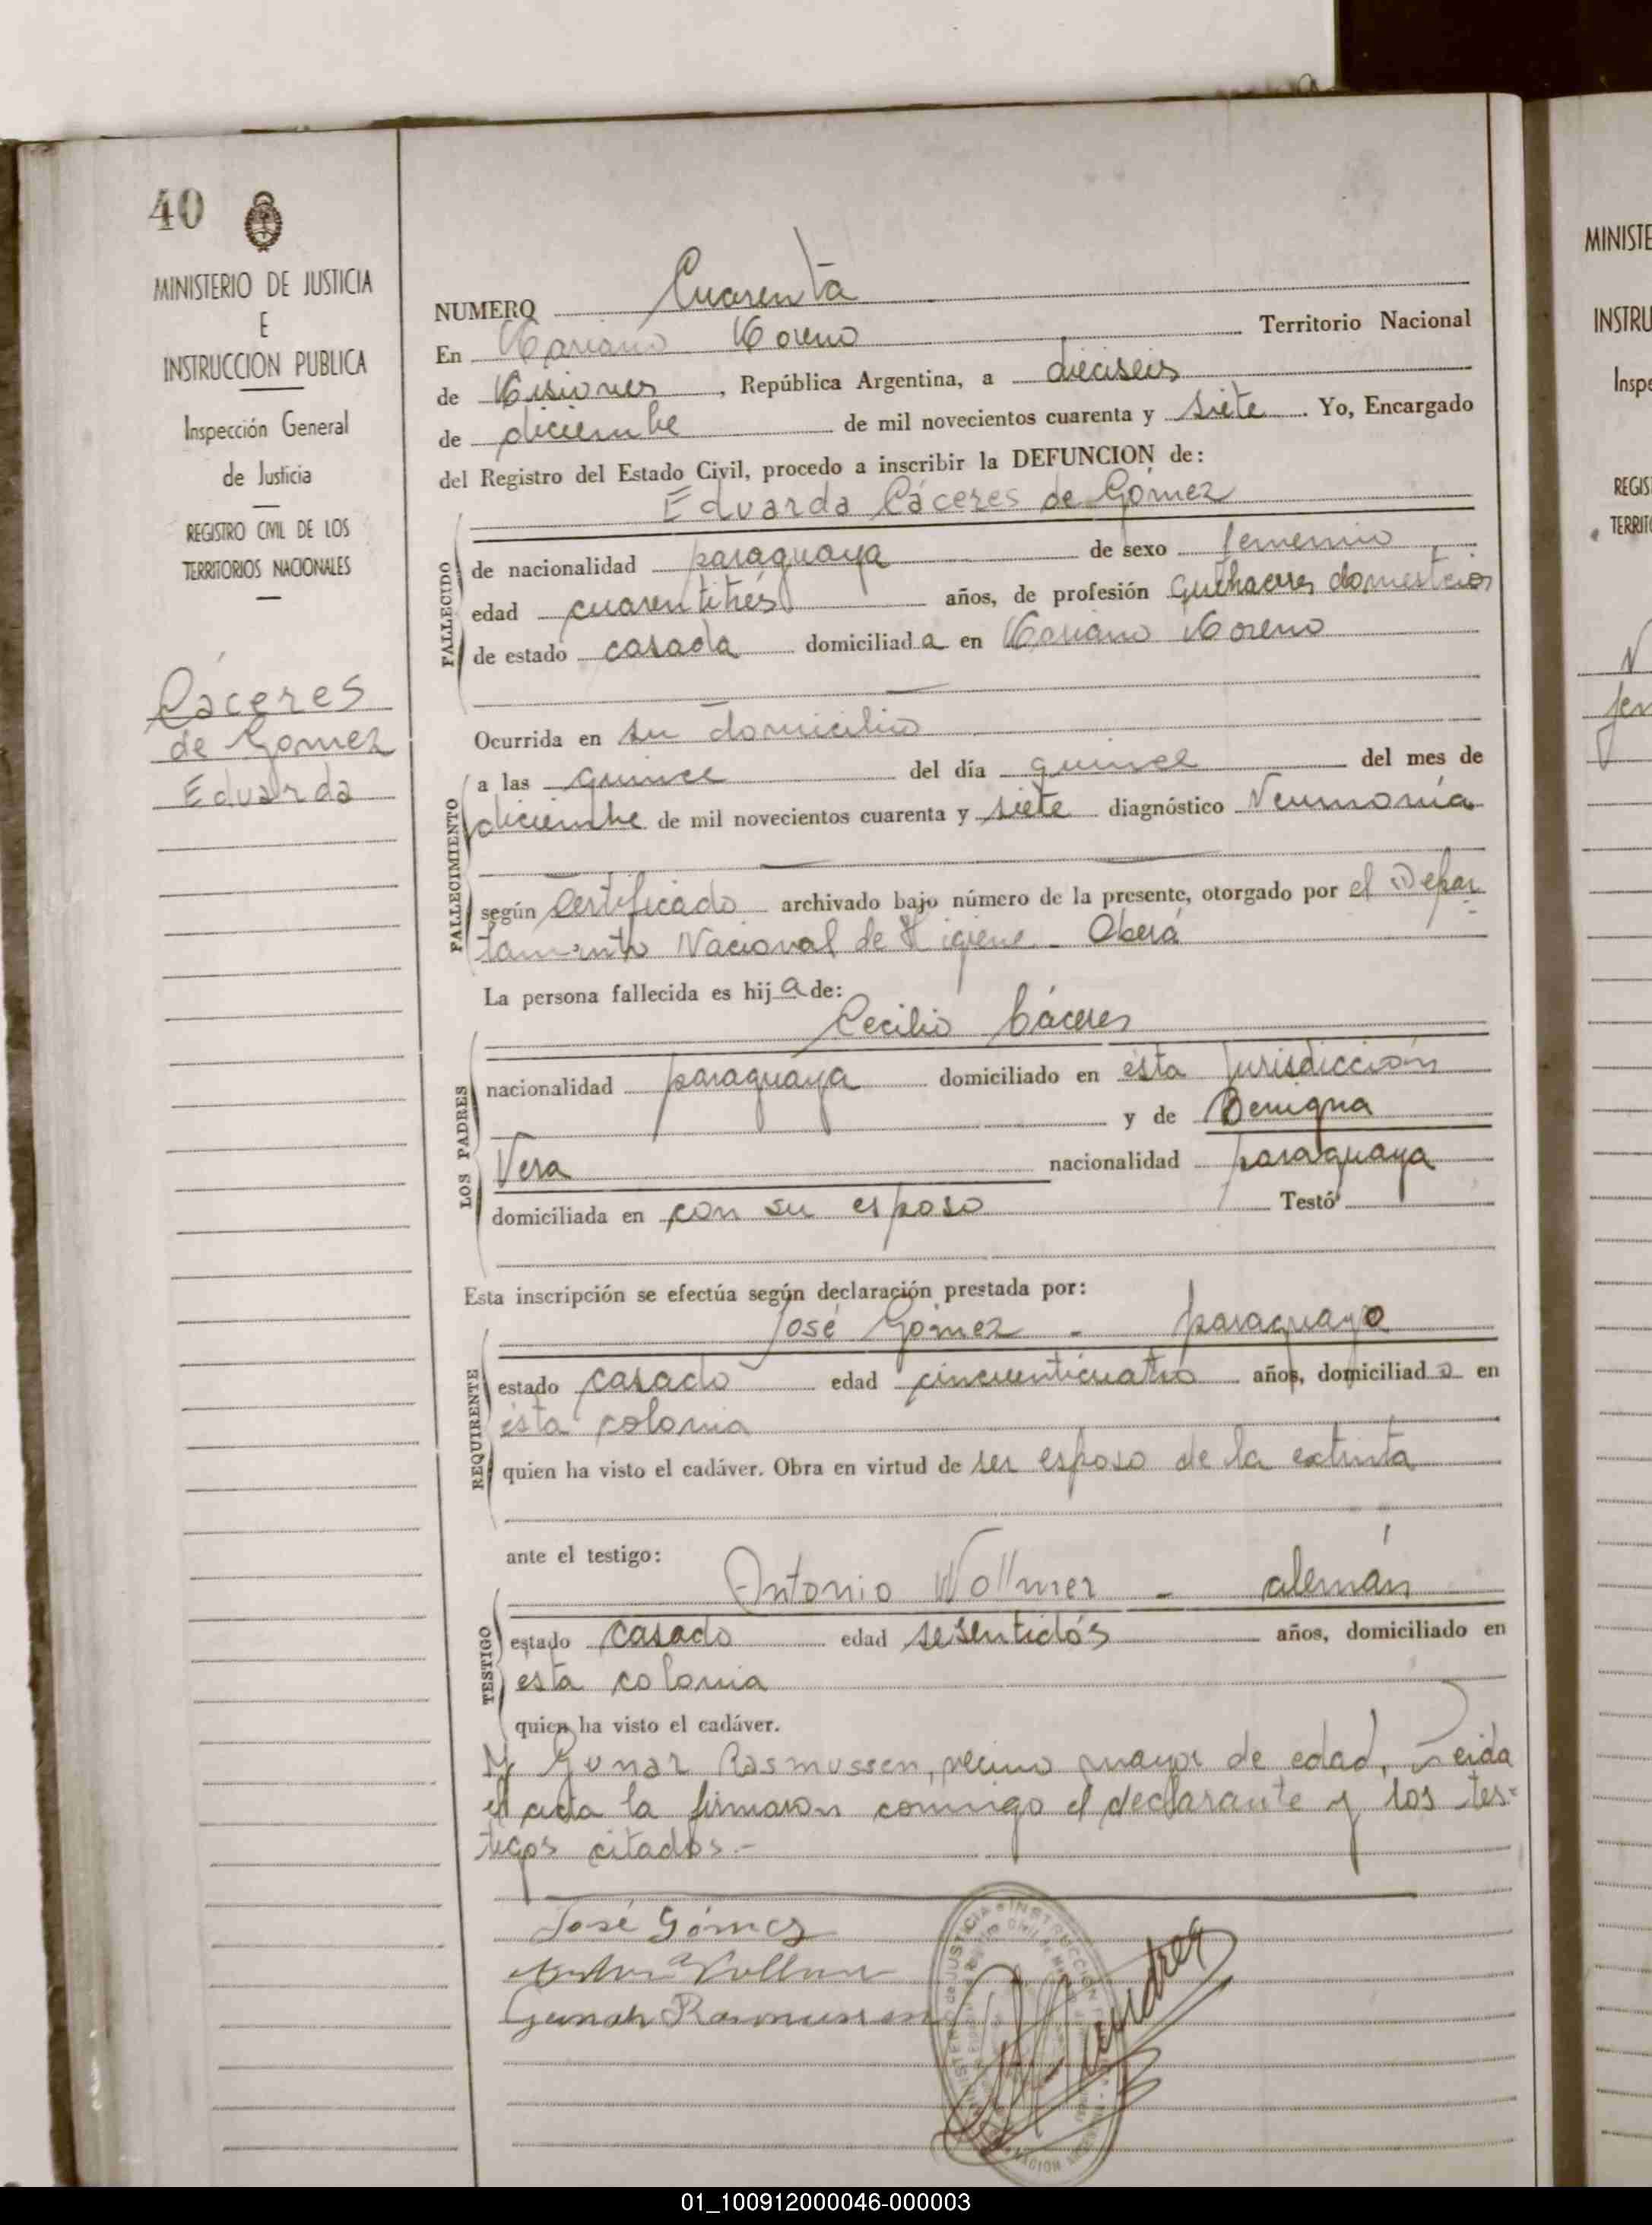 40
MINISTERIO DE JUSTICIA
E
INSTRUCCION PUBLICA
Inspección General
de Justicia
REGISTRO CIVIL DE LOS
TERRITORIOS NACIONALES
Cáceres
de Gomez
Eduarda
NUMERO Cuarenta
En Mariano Moreno Territorio Nacional
de Misiones, República Argentina, a dieciseis
de diciembre de mil novecientos cuarenta y siete. Yo, Encargado
del Registro del Estado Civil, procedo a inscribir la DEFUNCION de:
Eduarda Cáceres de Gómez
FALLECIDO
de nacionalidad paraguaya de sexo femenino
edad cuarentitrés años, de profesión quehaceres domesticos
de estado casada domiciliada en Mariano Moreno
Ocurrida en su domicilio
FALLECIMIENTO
a las quince del día quince del mes de
diciembre de mil novecientos cuarenta y siete diagnóstico Neumonía
según Certificado archivado bajo número de la presente, otorgado por el Depar
tamento Nacional de Higiene - Oberá
La persona fallecida es hija de:
Cecilio Cáceres
LOS PADRES
nacionalidad paraguaya domiciliado en ésta Jurisdicción
y de Benigna
Vera nacionalidad paraguaya
domiciliada en con su esposo Testó
Esta inscripción se efectúa según declaración prestada por:
José Gómez - paraguayo
REQUIRENTE
estado casado edad cincuenticuatro años, domiciliado en
ésta colonia
quien ha visto el cadáver. Obra en virtud de ser esposo de la extinta
ante el testigo:
Antonio Wollmer - alemán
TESTIGO
estado casado edad sesentidós años, domiciliado en
esta colonia
quien ha visto el cadáver.
Y Gunar Rasmussen, vecino mayor de edad. Leida
el acta la firmaron conmigo el declarante y los tes=
tigos citados.-
José Gómez
Gunar Rasmussen
MINISTE
INSTRU
Inspe
REGIS
TERRIT
01_100912000046-000003